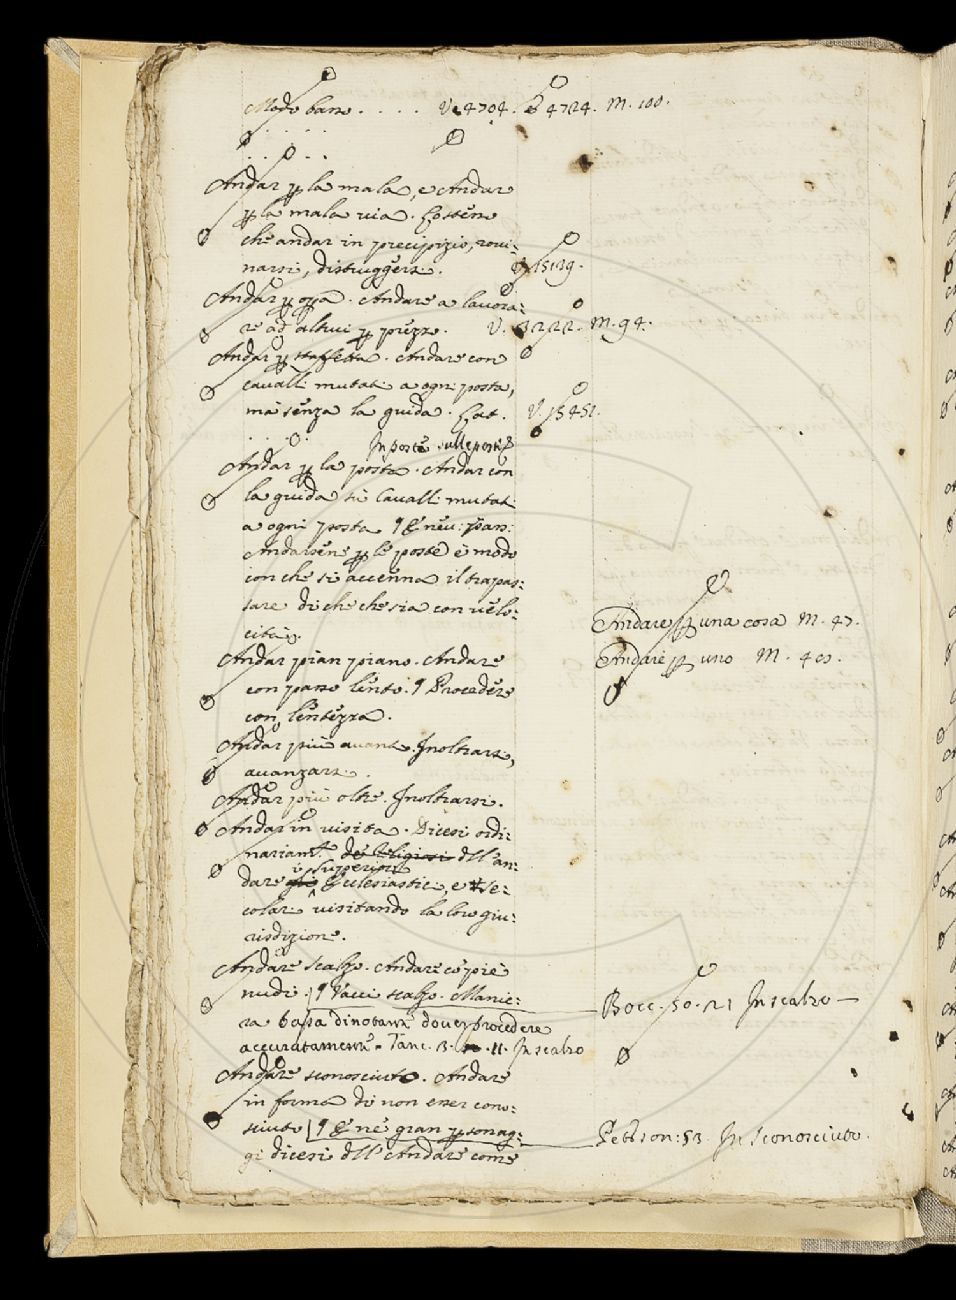 Modo basso . . . . . V. 4704. e 4724. M. 100.
Andar p la mala, e Andar
p la mala via.
che andar in precipizio, rovi:
narsi, distruggersi. 15139.
Andar p opa. Andare a lavora:
re ad altrui p prezzo. V. 3222. M. 94.
Andar p staffetta. Andare con
cavalli mutati a ogni posta,
ma senza la guida. V. 15451.
In poste sulle poste
Andar p la posta. Andar con
la guida su Cavalli mutati
a ogni posta ¶ E neu: pass:
Andarsene p le poste è modo
con che si accenna il trapas:
sare di che che sia con velo:
cità.
Andare p una cosa M. 47.
Andare p uno M. 40.
Andar pian piano. Andare
con passo lento. ¶ Procedere
con lentezza.
Andar più avanti. Inoltrarsi,
avanzarsi.
Andar più oltre. Inoltrarsi.
Andar in visita. Dicesi ordi:
nariamte de Religiosi dell'an:
i Superiori
dare gli Eclesiastici, e se:
colari visitando la loro giu:
risdizione.
Andare scalzo. Andare co' piè
nudi. ¶ Vacci scalzo. Manie:
Bocc. 50. 21 In scalzo —
ra bassa dinotante dover procedere
accuratamente = Tanc. 3. 11. In scalzo
Andare sconosciuto. Andare
in forma di non esser cono:
sciuto ¶ E ne gran psonag:
Petr son: 53. In Sconosciuto.
gi dicesi dell'Andare come